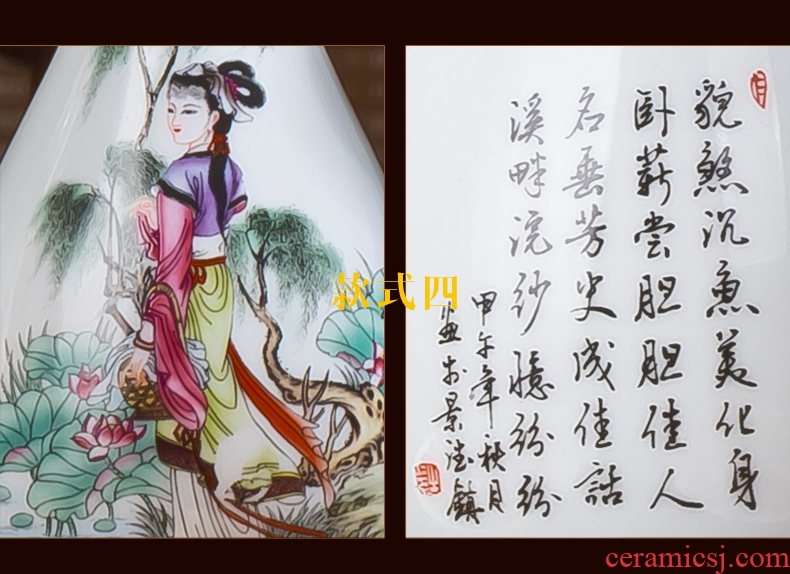 款式四
貌煞沉魚美化身
卧薪尝胆胆佳人
名垂芳史成佳話
溪畔浣纱臆纷纷
甲午年秋月
画於景德鎮
ceramicsj.com